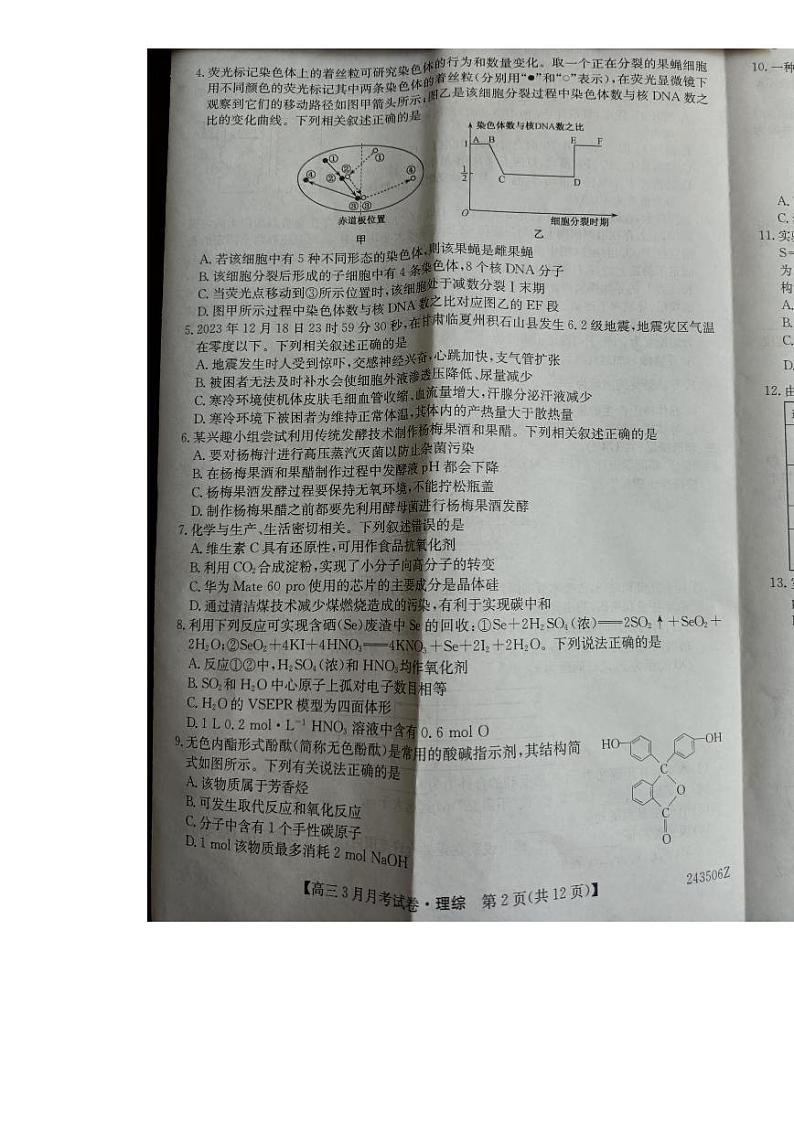 4. 荧光标记染色体上的着丝粒可研究染色体的行为和数量变化。取一个正在分裂的果蝇细胞
用不同颜色的荧光标记其中两条染色体的着丝粒(分别用“●”和“○”表示),在荧光显微镜下
观察到它们的移动路径如图甲箭头所示;图乙是该细胞分裂过程中染色体数与核 DNA 数之
比的变化曲线。下列相关叙述正确的是
① ① ② ② ③ ③ ④ ④
赤道板位置
甲
染色体数与核DNA数之比
1 A B E F
1/2 C D
O 细胞分裂时期
乙
A. 若该细胞中有 5 种不同形态的染色体,则该果蝇是雌果蝇
B. 该细胞分裂后形成的子细胞中有 4 条染色体,8 个核 DNA 分子
C. 当荧光点移动到③所示位置时,该细胞处于减数分裂Ⅰ末期
D. 图甲所示过程中染色体数与核 DNA 数之比对应图乙的 EF 段
5. 2023 年 12 月 18 日 23 时 59 分 30 秒,在甘肃临夏州积石山县发生 6.2 级地震,地震灾区气温
在零度以下。下列相关叙述正确的是
A. 地震发生时人受到惊吓,交感神经兴奋,心跳加快,支气管扩张
B. 被困者无法及时补水会使细胞外液渗透压降低、尿量减少
C. 寒冷环境使机体皮肤毛细血管收缩、血流量增大,汗腺分泌汗液减少
D. 寒冷环境下被困者为维持正常体温,其体内的产热量大于散热量
6. 某兴趣小组尝试利用传统发酵技术制作杨梅果酒和果醋。下列相关叙述正确的是
A. 要对杨梅汁进行高压蒸汽灭菌以防止杂菌污染
B. 在杨梅果酒和果醋制作过程中发酵液 pH 都会下降
C. 杨梅果酒发酵过程要保持无氧环境,不能拧松瓶盖
D. 制作杨梅果醋之前都要先利用酵母菌进行杨梅果酒发酵
7. 化学与生产、生活密切相关。下列叙述错误的是
A. 维生素 C 具有还原性,可用作食品抗氧化剂
B. 利用 CO₂ 合成淀粉,实现了小分子向高分子的转变
C. 华为 Mate 60 pro 使用的芯片的主要成分是晶体硅
D. 通过清洁煤技术减少煤燃烧造成的污染,有利于实现碳中和
8. 利用下列反应可实现含硒(Se)废渣中 Se 的回收:①Se+2H₂SO₄(浓)══2SO₂↑+SeO₂+
2H₂O;②SeO₂+4KI+4HNO₃══4KNO₃+Se+2I₂+2H₂O。下列说法正确的是
A. 反应①②中,H₂SO₄(浓)和 HNO₃均作氧化剂
B. SO₂ 和 H₂O 中心原子上孤对电子数目相等
C. H₂O 的 VSEPR 模型为四面体形
D. 1 L 0.2 mol·L⁻¹ HNO₃ 溶液中含有 0.6 mol O
9. 无色内酯形式酚酞(简称无色酚酞)是常用的酸碱指示剂,其结构简
式如图所示。下列有关说法正确的是
A. 该物质属于芳香烃
B. 可发生取代反应和氧化反应
C. 分子中含有 1 个手性碳原子
D. 1 mol 该物质最多消耗 2 mol NaOH
HO OH
C
O
C
O
【高三 3 月月考试卷·理综 第 2 页(共 12 页)】
243506Z
10. 一种
A.
C.
11. 实
S=
为
构
A.
B.
C.
D.
12. 由
13.